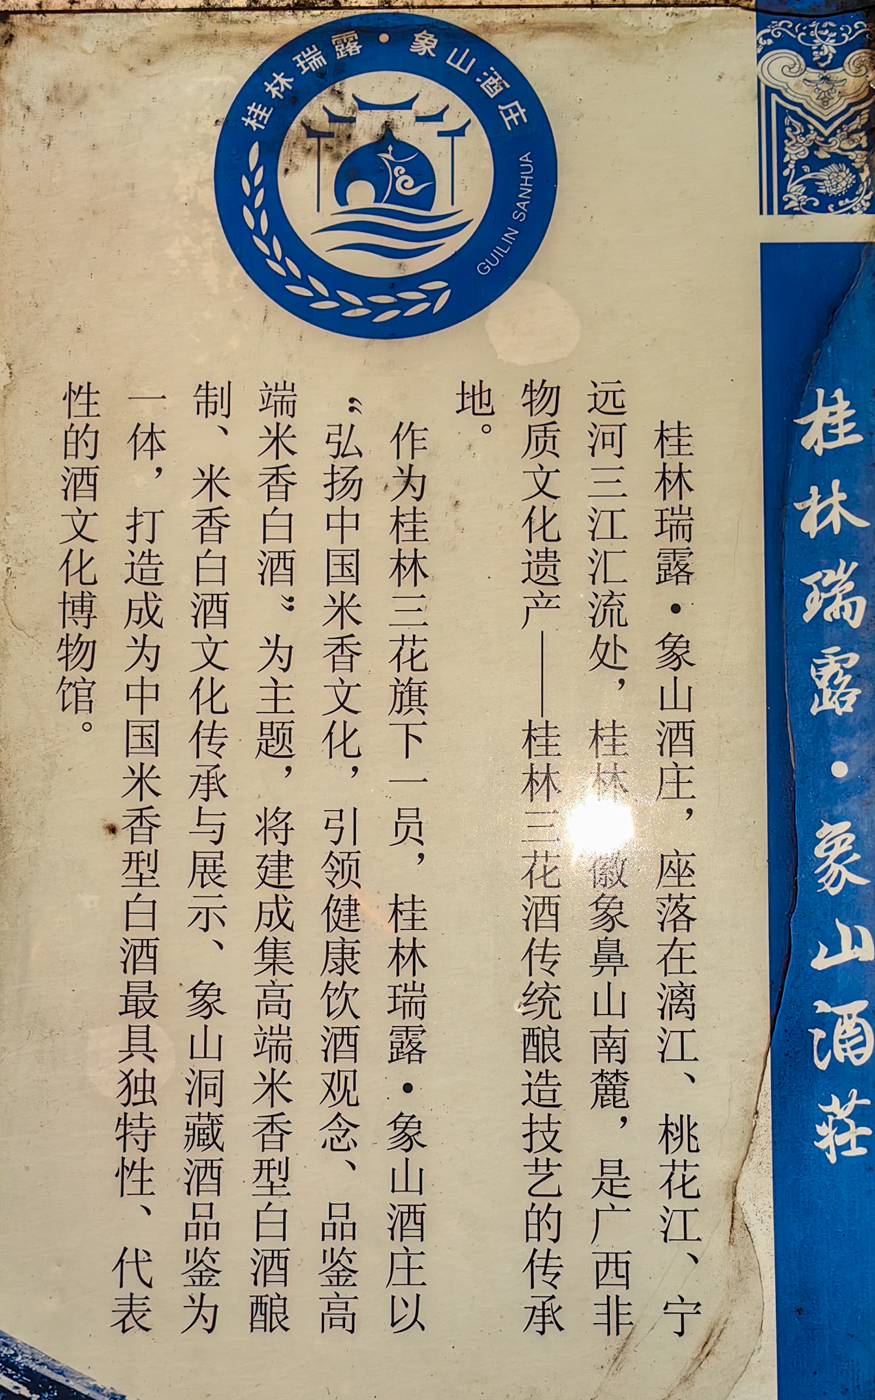 桂林瑞露·象山酒庄
GUILIN SANHUA
桂林瑞露·象山酒莊
桂林瑞露·象山酒庄，座落在漓江、桃花江、宁
远河三江汇流处，桂林徽象鼻山南麓，是广西非
物质文化遗产——桂林三花酒传统酿造技艺的传承
地。
作为桂林三花旗下一员，桂林瑞露·象山酒庄以
“弘扬中国米香文化，引领健康饮酒观念、品鉴高
端米香白酒”为主题，将建成集高端米香型白酒酿
制、米香白酒文化传承与展示、象山洞藏酒品鉴为
一体，打造成为中国米香型白酒最具独特性、代表
性的酒文化博物馆。